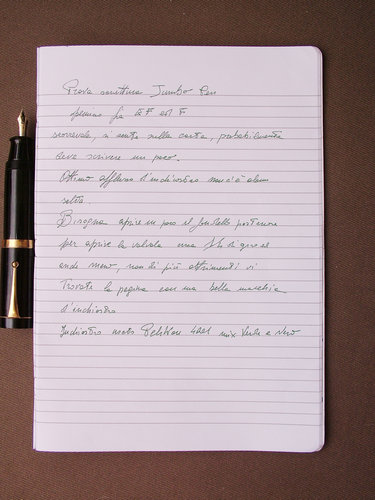 Prova scrittura Jumbo Pen
pennino fra EF ed F
scorrevole, si sente sulla carta, probabilmente
deve scrivere un poco.
Ottimo afflusso d'inchiostro non c'è alcun
salto.
Bisogna aprire un poco il fondello posteriore
per aprire la valvola ma
anche meno, non di più altrimenti vi
trovate la pagina con una bella macchia
d'inchiostro
Inchiostro Pelikan 4001 mix Verde e Nero